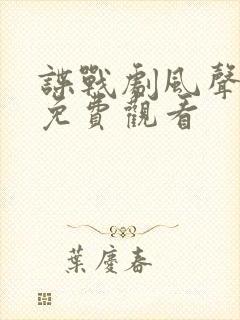 諜戰劇風聲
免費觀看
葉慶春